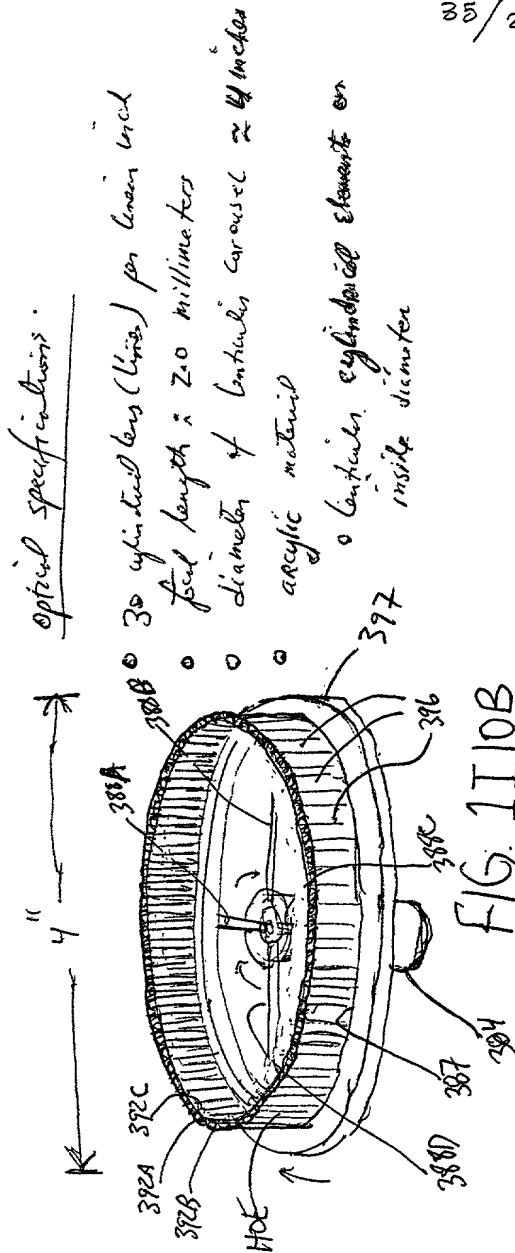 85/2
optical specifications:
o 30 cylindrical lens (lines) per linear inch
• focal length ≈ 2.0 millimeters
o diameter of lenticular carousel ≈ 4 inches
o arcylic material
o lenticular cylindrical elements on
inside diameter
4"
392A
392B
392C
388A
388B
HOE
388D
387
384
388C
396
397
FIG. 1I10B